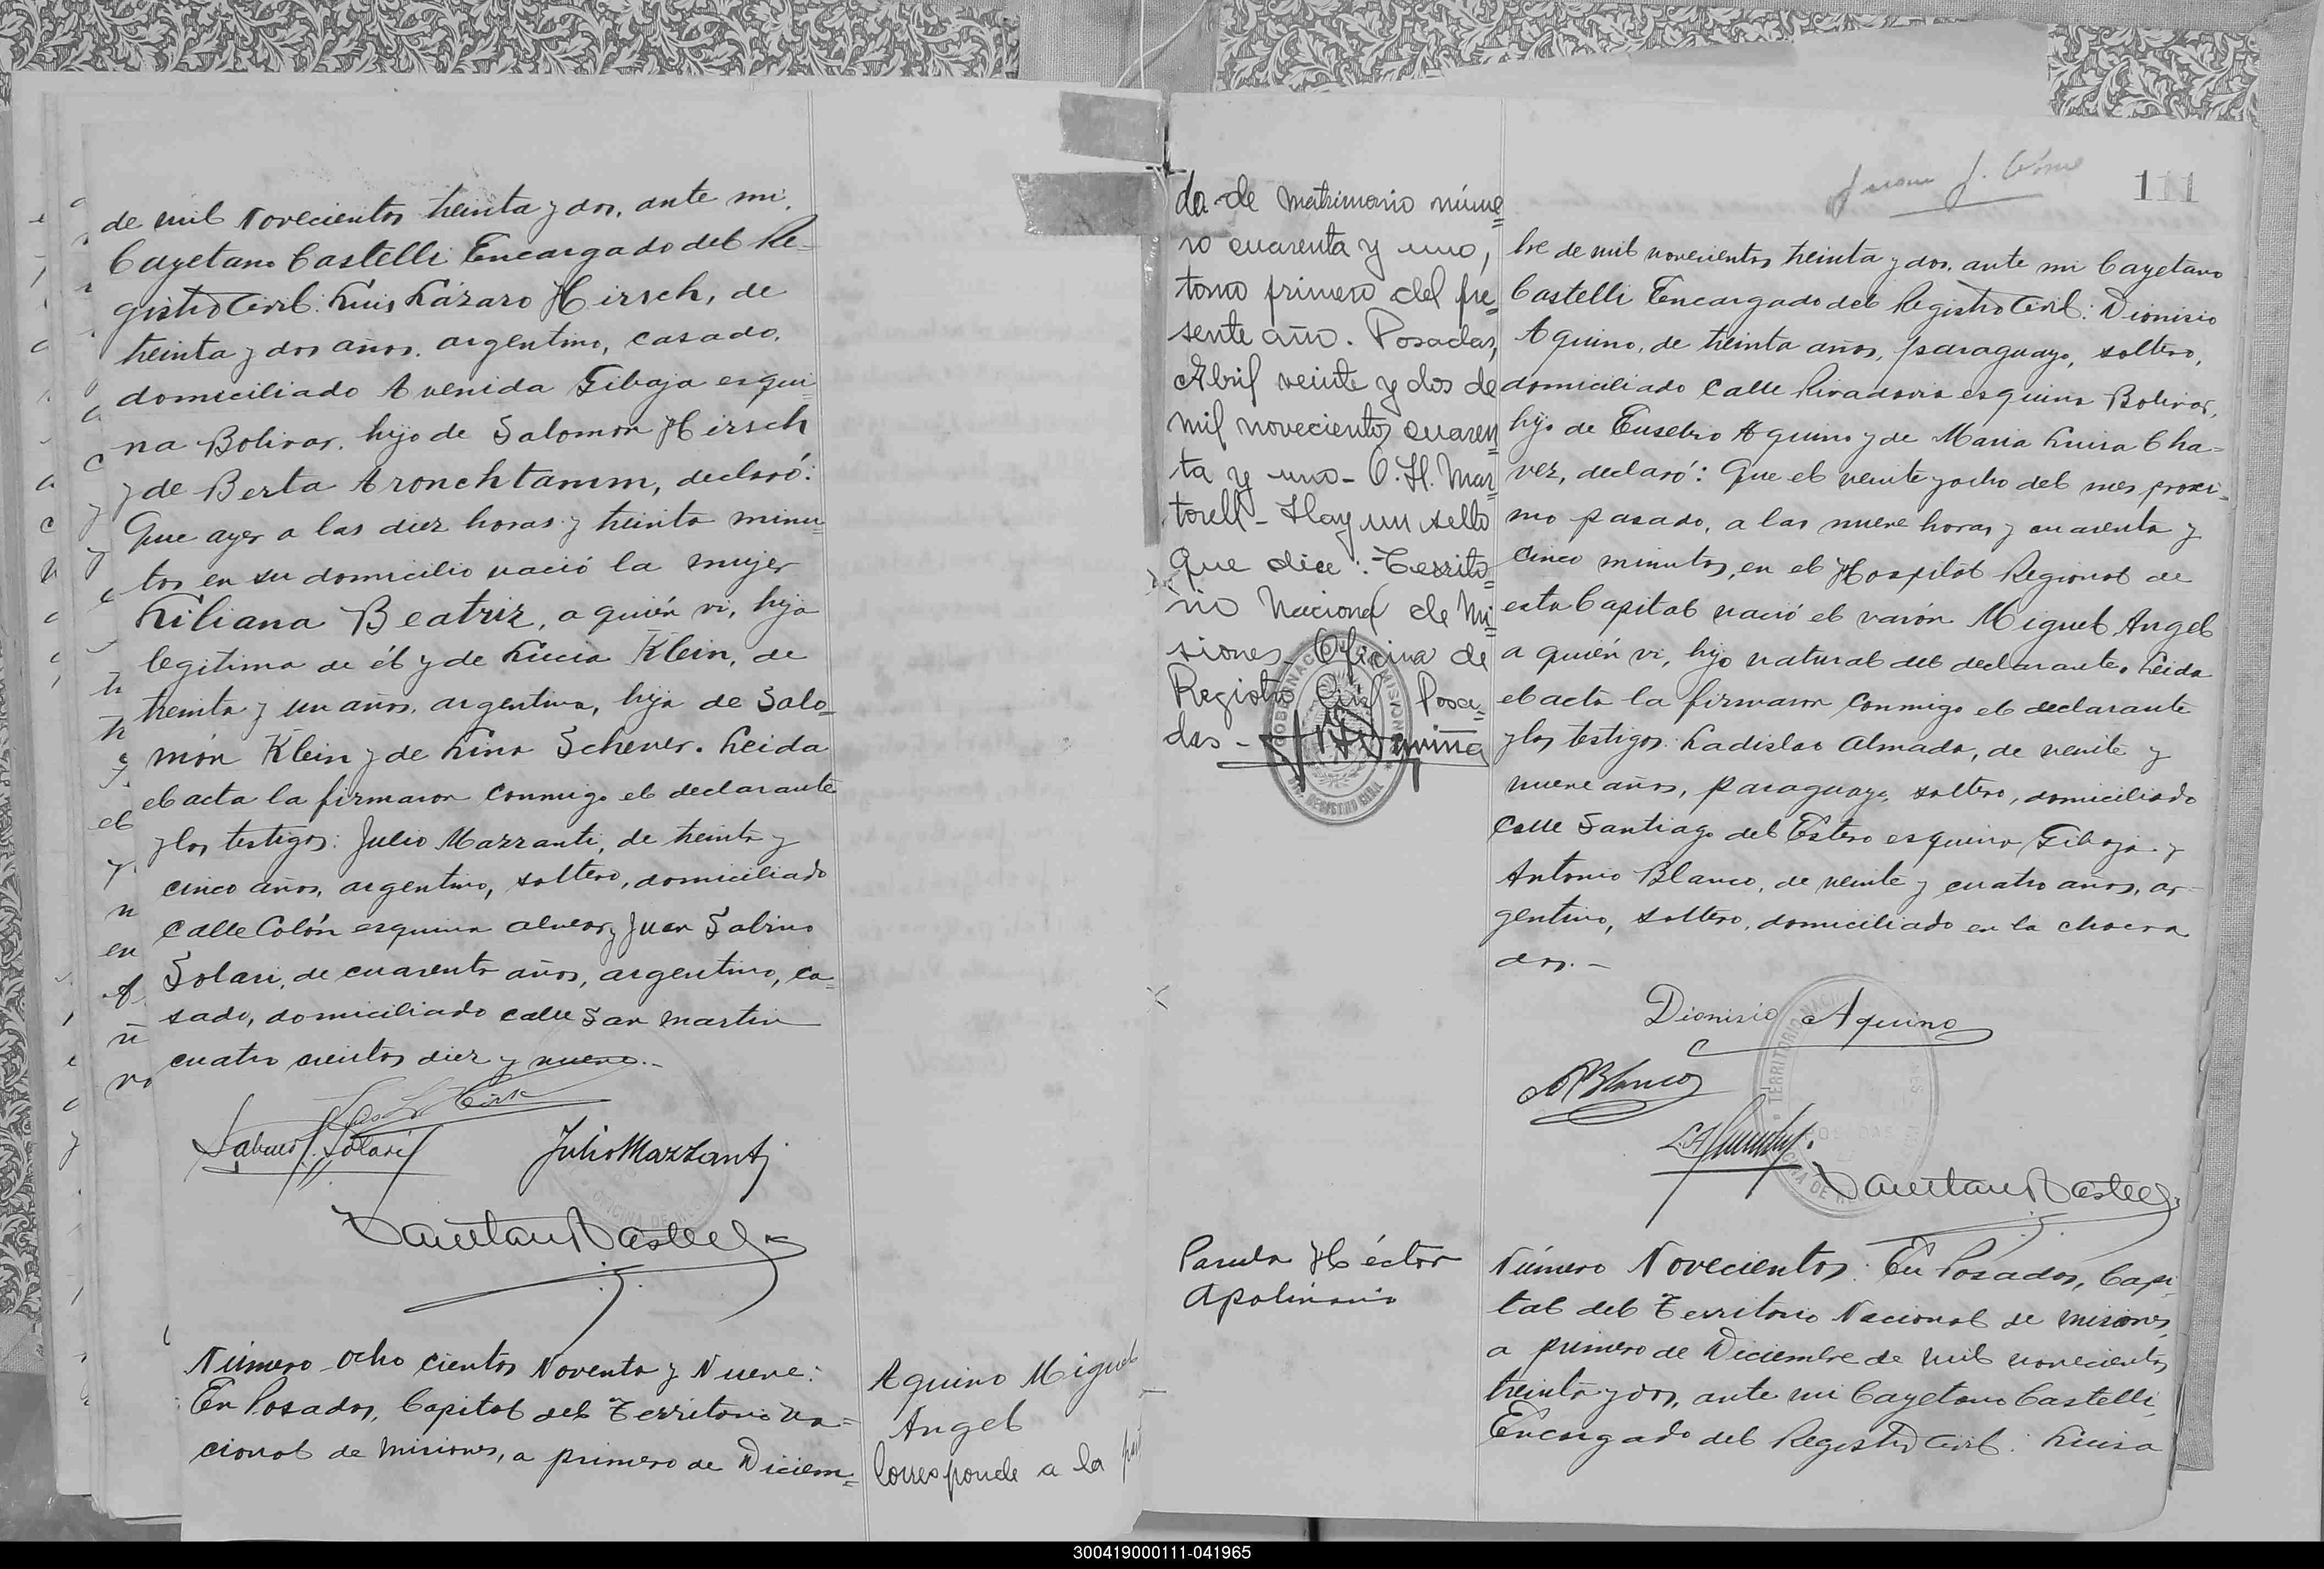 de mil Novecientos treinta y dos, ante mi,
Cayetano Castelli Encargado del Re=
gistro Civil: Luis Lázaro Hirsch, de
treinta y dos años, argentino, casado,
domiciliado Avenida Gibaja esqui
na Bolivar, hijo de Salomón Hirsch
y de Berta Aronchtamm, declaró:
Que ayer a las diez horas y treinta minu=
tos en su domicilio nació la mujer
Liliana Beatriz, a quién vi, hija
legitima de él y de Lucia Klein, de
treinta y un años, argentina, hija de Salo=
món Klein y de Lina Schener. Leida
el acta la firmaron conmigo el declarante
y los testigos: Julio Mazzanti, de treinta y
cinco años, argentino, soltero, domiciliado
calle Colón esquina alvear, Juan Sabino
Solari, de cuarenta años, argentino, ca=
sado, domiciliado calle San Martin
cuatro cientos diez y nueve.-
Sabino J. Solari
Julio Mazzanti
Cayetano Castelli
Número ocho cientos Noventa y Nueve:
En Posadas, Capital del Territorio Na=
cional de Misiones, a primero de Diciem=
Aquino Miguel
Angel
Corresponde a la
da de matrimonio núme=
ro cuarenta y uno,
tomo primero del pre=
sente año. Posadas,
Abril veinte y dos de
mil novecientos cuaren
ta y uno - O. H. Mar=
torell - Hay un sello
que dice: Territo=
rio Nacional de Mi=
siones - Oficina de
Registro Civil Posa=
das -
111
bre de mil novecientos treinta y dos, ante mi Cayetano
Castelli Encargado del Registro Civil: Dionisio
Aquino, de treinta años, paraguayo, soltero,
domiciliado calle Rivadavia esquina Bolivar,
hijo de Eusebio Aquino y de Maria Luisa Cha=
vez, declaró: Que el veinte y ocho del mes proxi=
mo pasado, a las nueve horas y cuarenta y
cinco minutos, en el Hospital Regional de
esta Capital nació el varón Miguel Angel
a quién vi, hijo natural del declarante. Leida
el acta la firmaron conmigo el declarante
y los testigos: Ladislao Almada, de veinte y
nueve años, paraguayo, soltero, domiciliado
calle Santiago del Estero esquina Gibaja y
Antonio Blanco, de veinte y cuatro años, ar=
gentino, soltero, domiciliado en la chacra
dos.-
Dionisio Aquino
A Blanco
Cayetano Castelli
Parula Héctor
Apolinario
Número Novecientos: En Posadas, Capi=
tal del Territorio Nacional de Misiones,
a primero de Diciembre de mil novecientos
treinta y dos, ante mi Cayetano Castelli,
Encargado del Registro Civil: Luisa
300419000111-041965